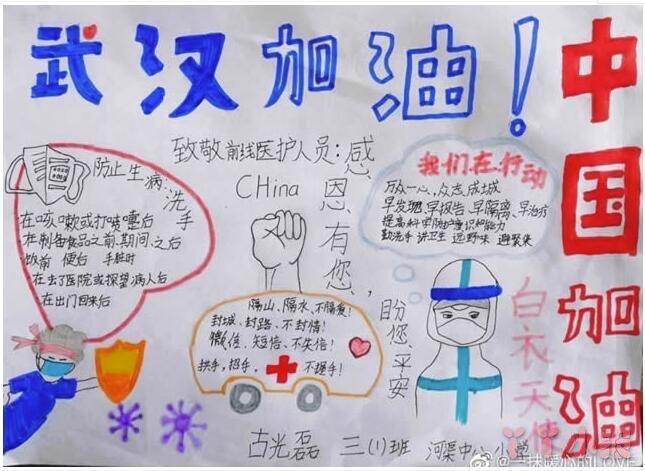 武汉加油！
中国加油
致敬前线医护人员：
感恩有您，
盼您平安
CHina
防止生病：
洗手
在咳嗽或打喷嚏后
在制备食品之前.期间.之后
饭前 便后 手脏时
在去了医院或探望病人后
在出门回来后
我们在行动
万众一心、众志成城
早发现、早报告、早隔离、早治疗
提高科学防护意识和能力
勤洗手 讲卫生 远野味 避聚集
隔山、隔水、不隔爱！
封城、封路、不封情！
微信、短信、不失信！
拱手，招手，不握手！
白衣天使
古光磊 三(1)班 河渠中心小学